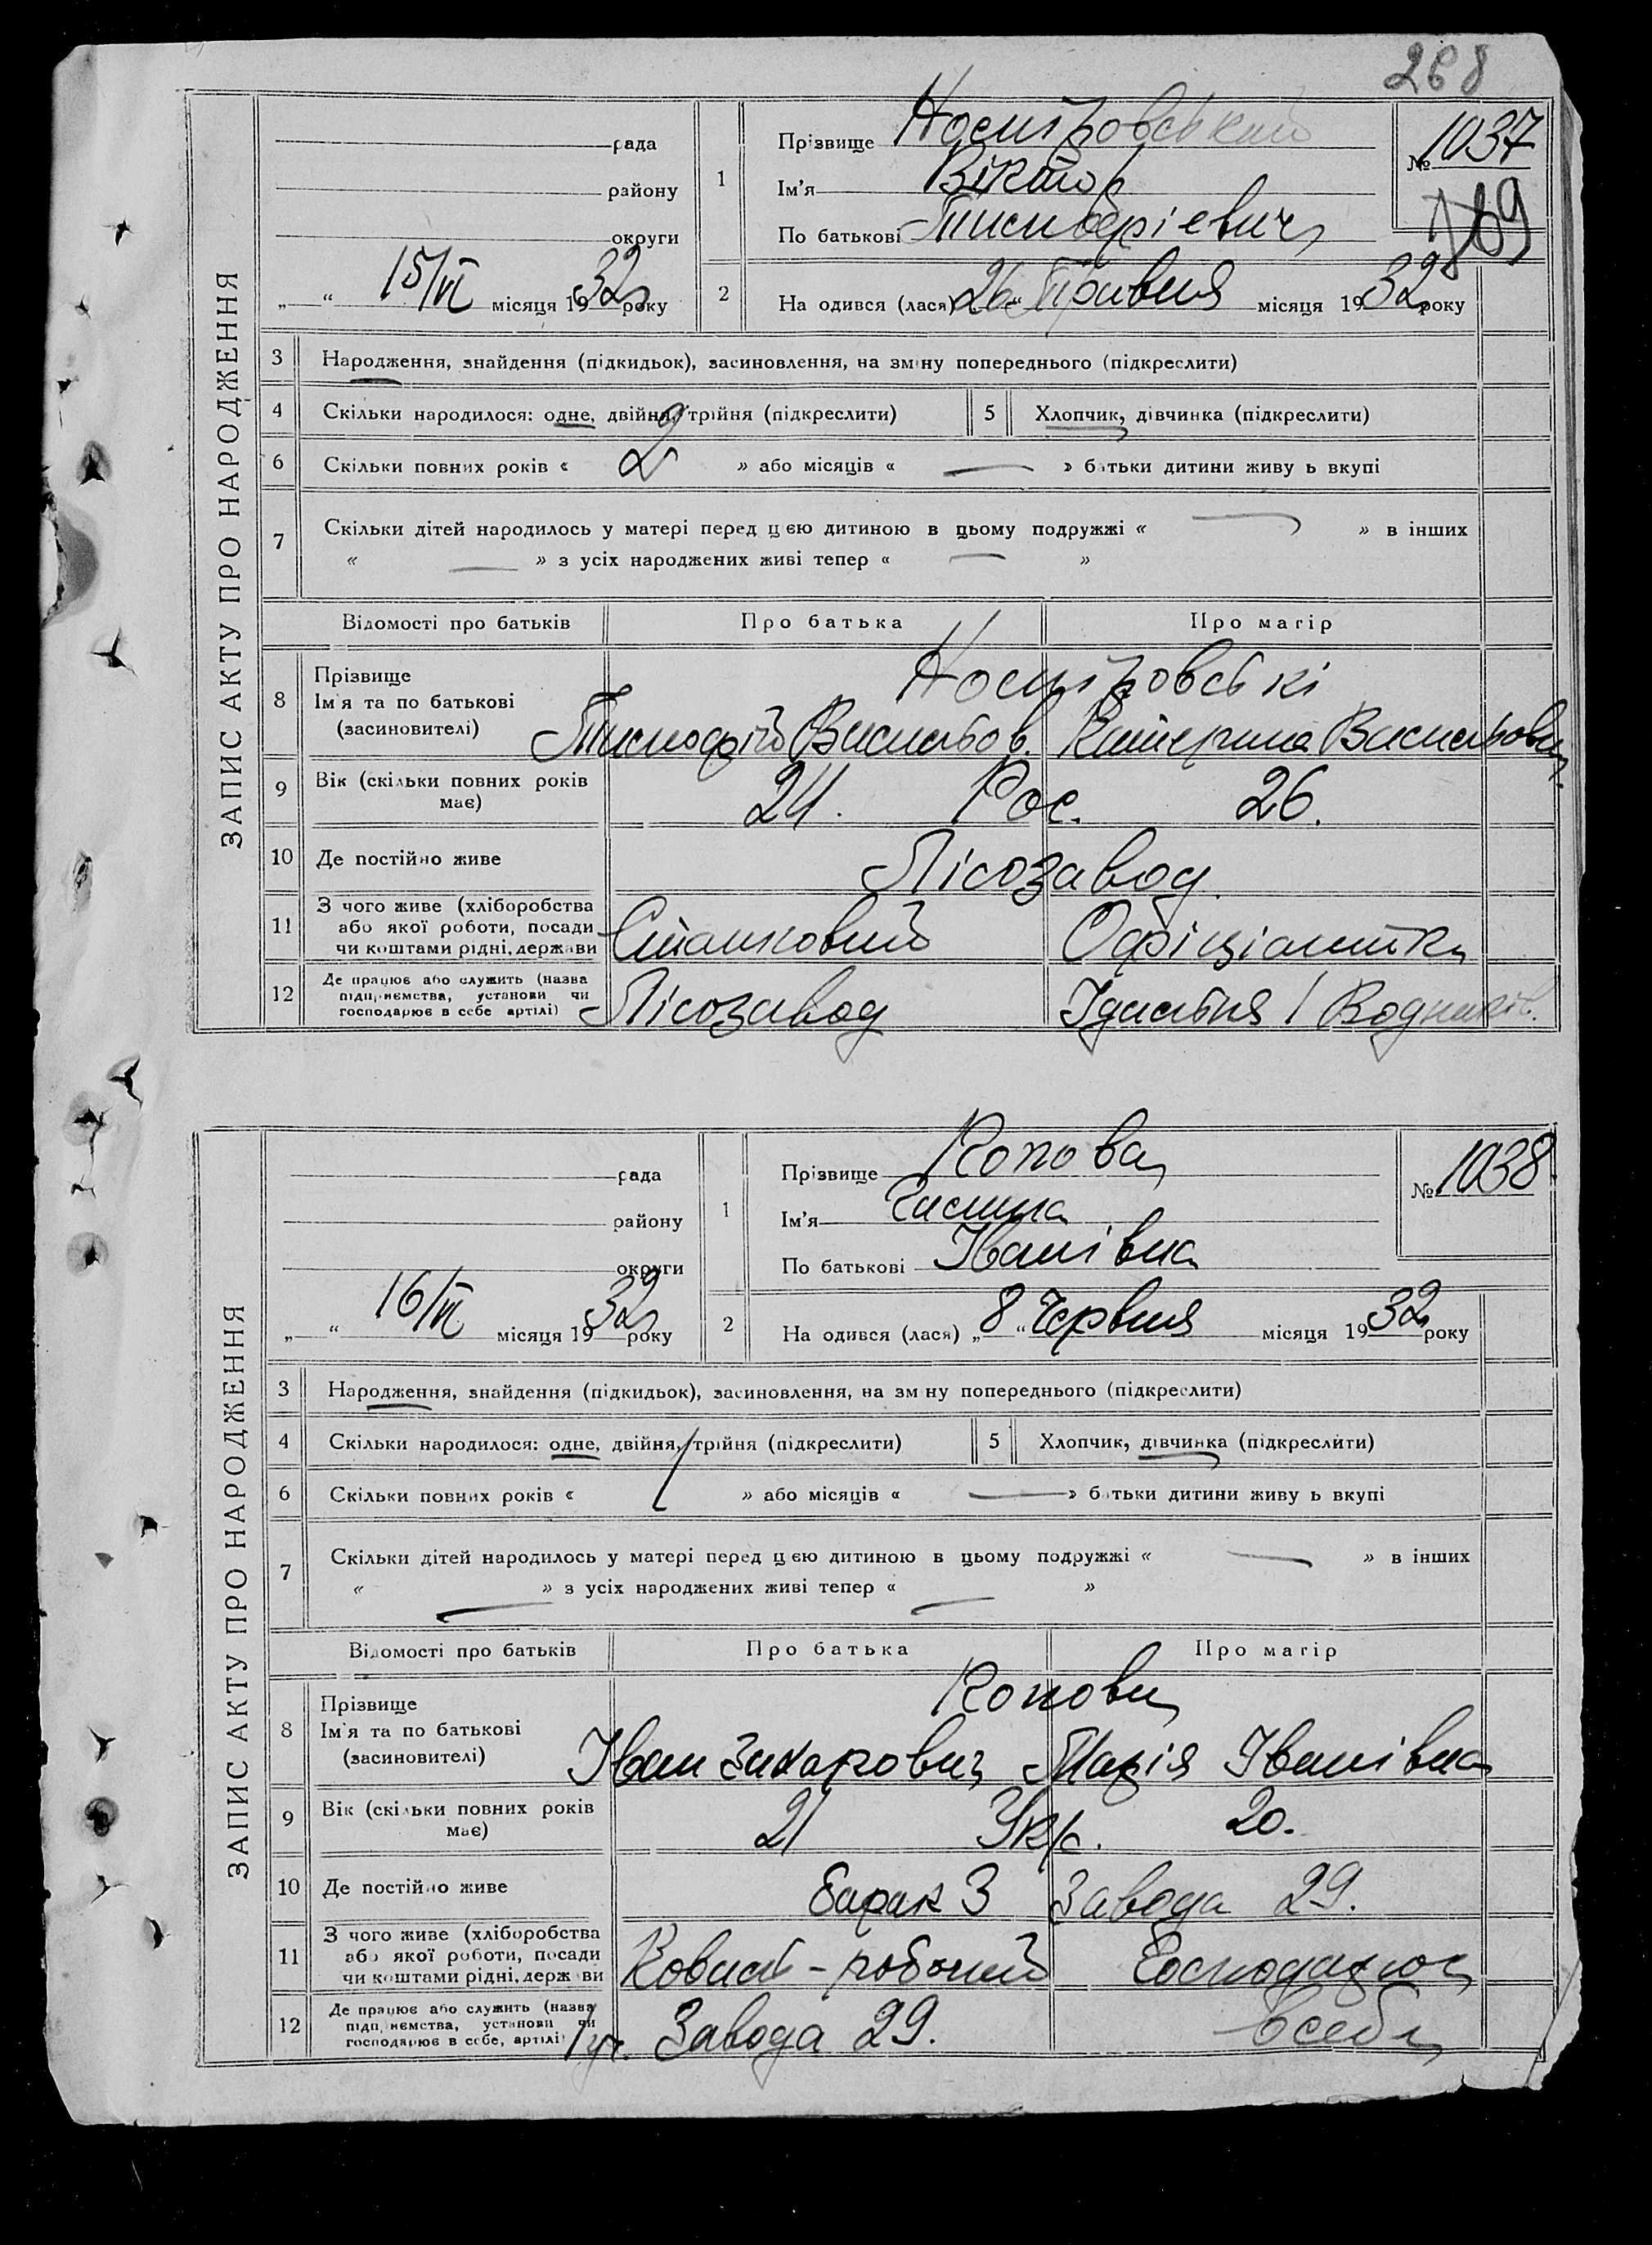 268
ЗАПИС АКТУ ПРО НАРОДЖЕННЯ
рада
району
округи
„ “ 15/VI місяця 1932 року
1
Прізвище
Ім'я Віктор
По батькові Тимофієвич
№ 1037
2
На одився (лася) 26 “ Травня місяця 1932 року
3 Народження, знайдення (підкидьок), засиновлення, на зміну попереднього (підкреслити)
4 Скільки народилося: одне, двійня, трійня (підкреслити)
5 Хлопчик, дівчинка (підкреслити)
6 Скільки повних років « 2 » або місяців « — » батьки дитини живу ь вкупі
7 Скільки дітей народилось у матері перед цею дитиною в цьому подружжі « — » в інших
« — » з усіх народжених живі тепер « — »
Відомості про батьків Про батька Про матір
8 Прізвище
Ім'я та по батькові
(засиновителі)
Тимофій Васильов. Катерина Васильовн
9 Вік (скільки повних років має) 24. Рос. 26.
10 Де постійно живе Лісозавод
11 З чого живе (хліборобства
або якої роботи, посади
чи коштами рідні, держави
Станковий Офіціантка
12 Де працює або служить (назва
підприємства, установи чи
господарює в себе артілі)
Лісозавод Їдальня / Водників.
ЗАПИС АКТУ ПРО НАРОДЖЕННЯ
рада
району
округи
„ “ 16/VI місяця 1932 року
1
Прізвище
Ім'я Галина
По батькові Іванівна
№ 1038
2
На одився (лася) „ 8 “ Червня місяця 1932 року
3 Народження, знайдення (підкидьок), засиновлення, на зм ну попереднього (підкреслити)
4 Скільки народилося: одне, двійня, трійня (підкреслити)
5 Хлопчик, дівчинка (підкреслити)
6 Скільки повних років « 1 » або місяців « — » батьки дитини живу ь вкупі
7 Скільки дітей народилось у матері перед цею дитиною в цьому подружжі « — » в інших
« — » з усіх народжених живі тепер « — »
Відомості про батьків Про батька Про матір
8 Прізвище
Ім'я та по батькові
(засиновителі)
Іван Захарович Марія Іванівна
9 Вік (скільки повних років має) 21 Укр. 20.
10 Де постійно живе Барак 3 Завода 29.
11 З чого живе (хліборобства
або якої роботи, посади
чи коштами рідні, держави
Коваль - робочий Господарює
12 Де працює або служить (назва
підприємства, установи чи
господарює в себе, артілі)
Завода 29. В себе